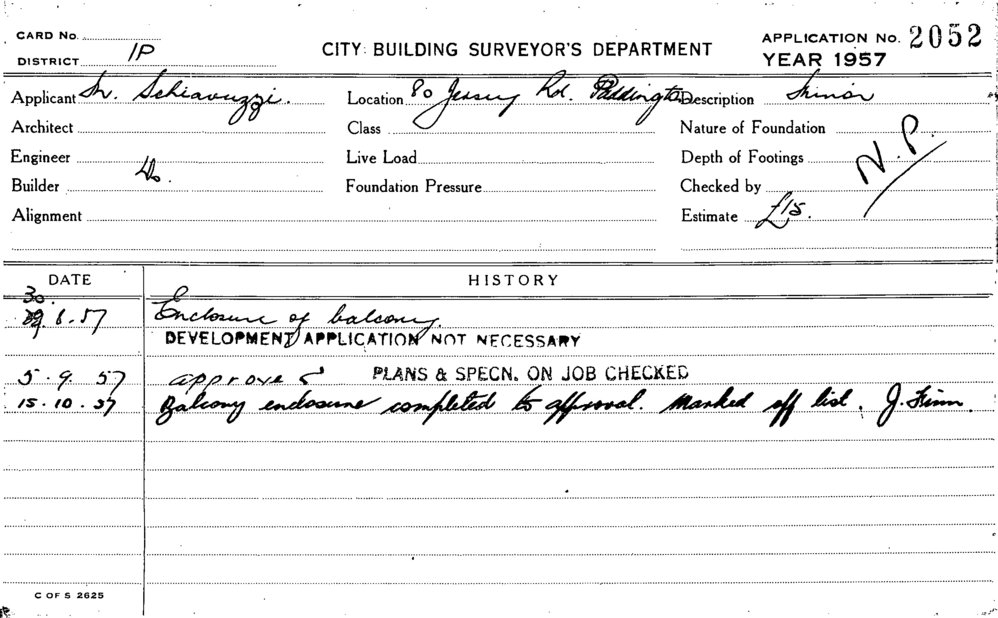 CARD No.
DISTRICT 1P
CITY BUILDING SURVEYOR'S DEPARTMENT
APPLICATION No. 2052
YEAR 1957
Applicant Schiavuzzi.
Location 80 Jersey Rd. Paddington
Description Minor
Architect
Class
Nature of Foundation
N.P.
Engineer
Live Load
Depth of Footings
Builder Do.
Foundation Pressure
Checked by
Alignment
Estimate £15.
DATE HISTORY
30
8.57 Enclosure of balcony.
DEVELOPMENT APPLICATION NOT NECESSARY
5.9.57 approved PLANS & SPECN. ON JOB CHECKED
15.10.57 Balcony enclosure completed to approval. Marked off list. J.
C OF S 2625